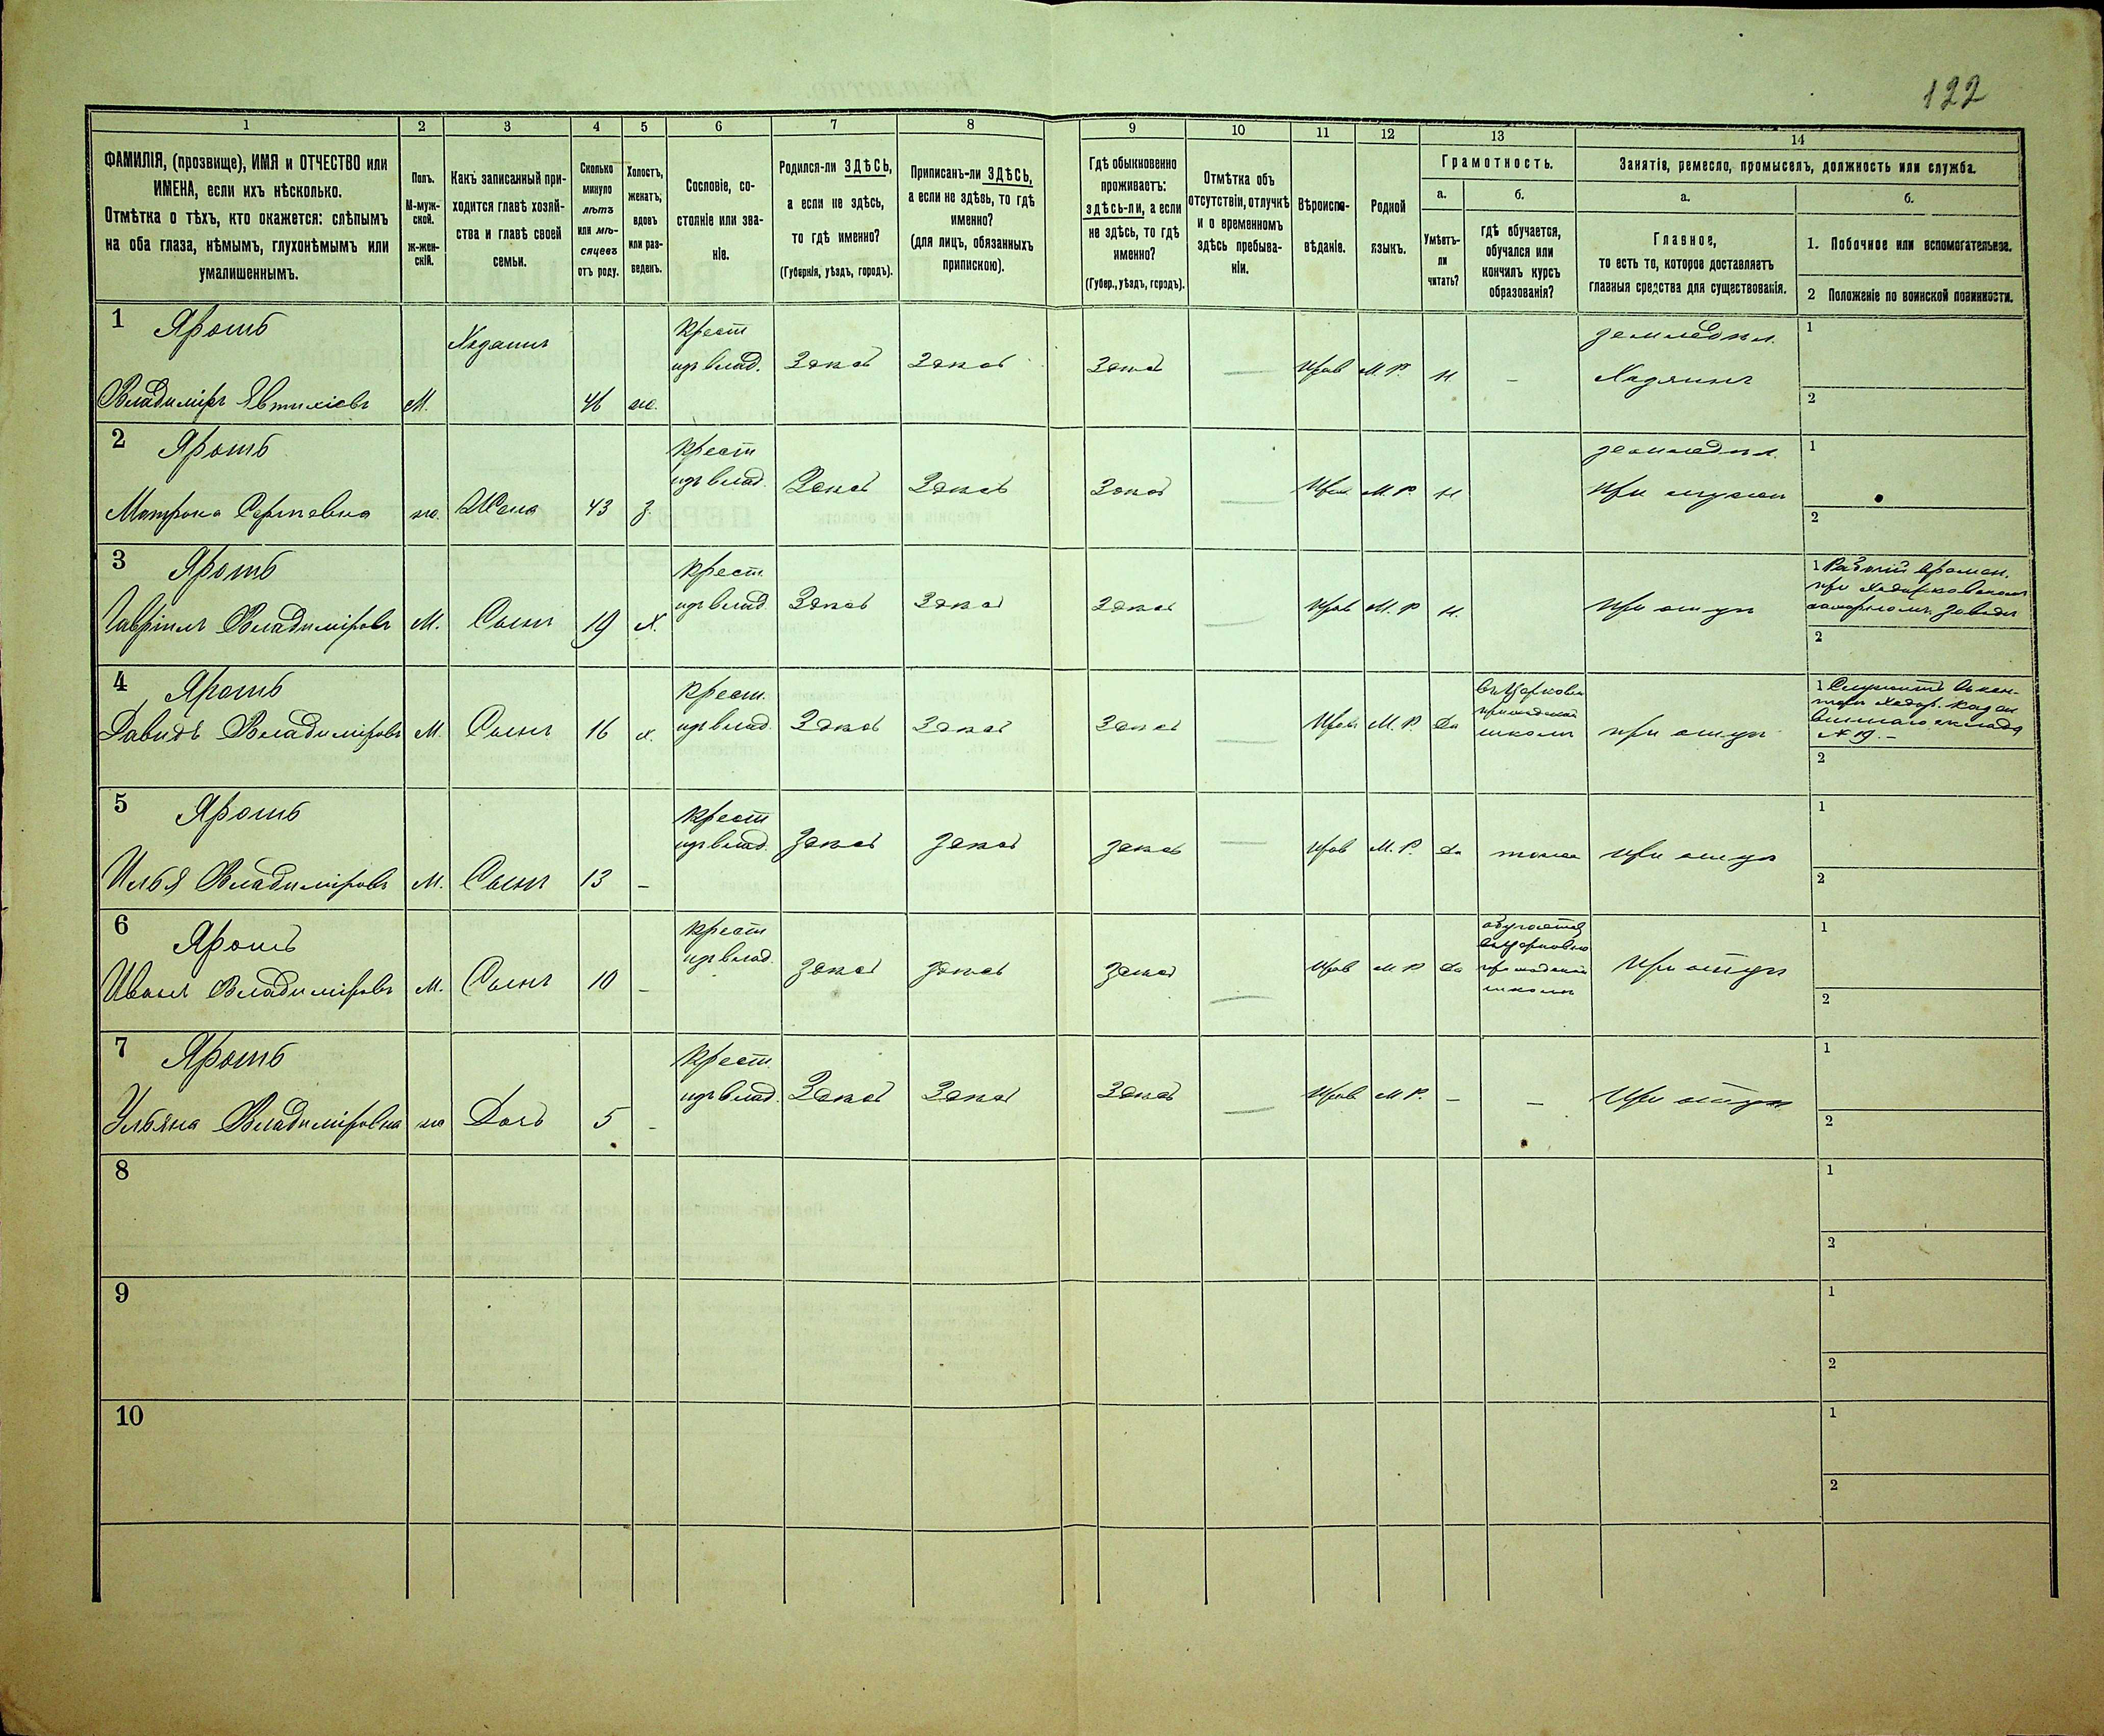 122
1 2 3 4 5 6 7 8 9 10 11 12 13 14
ФАМИЛІЯ, (прозвище), ИМЯ и ОТЧЕСТВО или
ИМЕНА, если ихъ нѣсколько.
Отмѣтка о тѣхъ, кто окажется: слѣпымъ
на оба глаза, нѣмымъ, глухонѣмымъ или
умалишеннымъ.
Полъ.
М-муж-
ской.
ж-жен-
скій.
Какъ записанный при-
ходится главѣ хозяй-
ства и главѣ своей
семьи.
Сколько
минуло
лѣтъ
или мѣ-
сяцевъ
отъ роду.
Холостъ,
женатъ,
вдовъ
или раз-
веденъ.
Сословіе, со-
стояніе или зва-
ніе.
Родился-ли ЗДѢСЬ,
а если не здѣсь,
то гдѣ именно?
(Губернія, уѣздъ, городъ).
Приписанъ-ли ЗДѢСЬ,
а если не здѣсь, то гдѣ
именно?
(для лицъ, обязанныхъ
припискою).
Гдѣ обыкновенно
проживаетъ:
здѣсь-ли, а если
не здѣсь, то гдѣ
именно?
(Губер., уѣздъ, городъ).
Отмѣтка объ
отсутствіи, отлучкѣ
и о временномъ
здѣсь пребыва-
ніи.
Вѣроиспо-
вѣданіе.
Родной
языкъ.
Грамотность.
а.
Умѣетъ-
ли
читать?
б.
гдѣ обучается,
обучался или
кончилъ курсъ
образованія?
Занятія, ремесло, промыселъ, должность или служба.
а.
Главное,
то есть то, которое доставляетъ
главныя средства для существованія.
б.
1. Побочное или вспомогательное.
2 Положеніе по воинской повинности.
1 Ярошъ
Владиміръ Евтихіевъ М. Хазяинъ 46 ж.
Крест
изъ влад. Здѣсь Здѣсь Здѣсь — Прав М.Р. н –
земледѣл.
Хазяинъ
1
2
2 Ярошъ
Матрона Сергѣевна ж. Жена 43 з.
Крест
изъ влад. Здѣсь Здѣсь Здѣсь — Прав М.Р. н
земледѣл.
При мужѣ
1
2
3 Ярошъ
Гавріилъ Владиміровъ М. Сынъ 19 х.
Крест.
изъ влад. Здѣсь Здѣсь Здѣсь — Прав М.Р н.
При отцѣ
1 Рабочій времен.
при Ходорковскомъ
сахарномъ заводѣ
2
4 Ярошъ
Давидъ Владиміровъ М. Сынъ 16 х.
Крест.
изъ влад. Здѣсь Здѣсь Здѣсь — Прав М.Р. да
Въ Церковно
приходской
школѣ
при отцѣ
1 Служитъ въ кон-
торѣ Ходор. казен
виннаго склада
№ 19. –
2
5 Ярошъ
Илья Владиміровъ М. Сынъ 13 –
Крест
изъ влад. здѣсь здѣсь здѣсь — Прав М.Р. да тоже при отцѣ
1
2
6 Ярошъ
Иванъ Владиміровъ М. Сынъ 10 –
Крест
изъ влад. здѣсь здѣсь здѣсь — Прав М Р да
обучается
въ Церковно
приходской
школѣ
При отцѣ
1
2
7 Ярошъ
Ульяна Владимірова ж Дочь 5 –
Крест.
изъ влад. Здѣсь Здѣсь Здѣсь — Прав М Р. – – При отцѣ
1
2
8
1
2
9
1
2
10
1
2